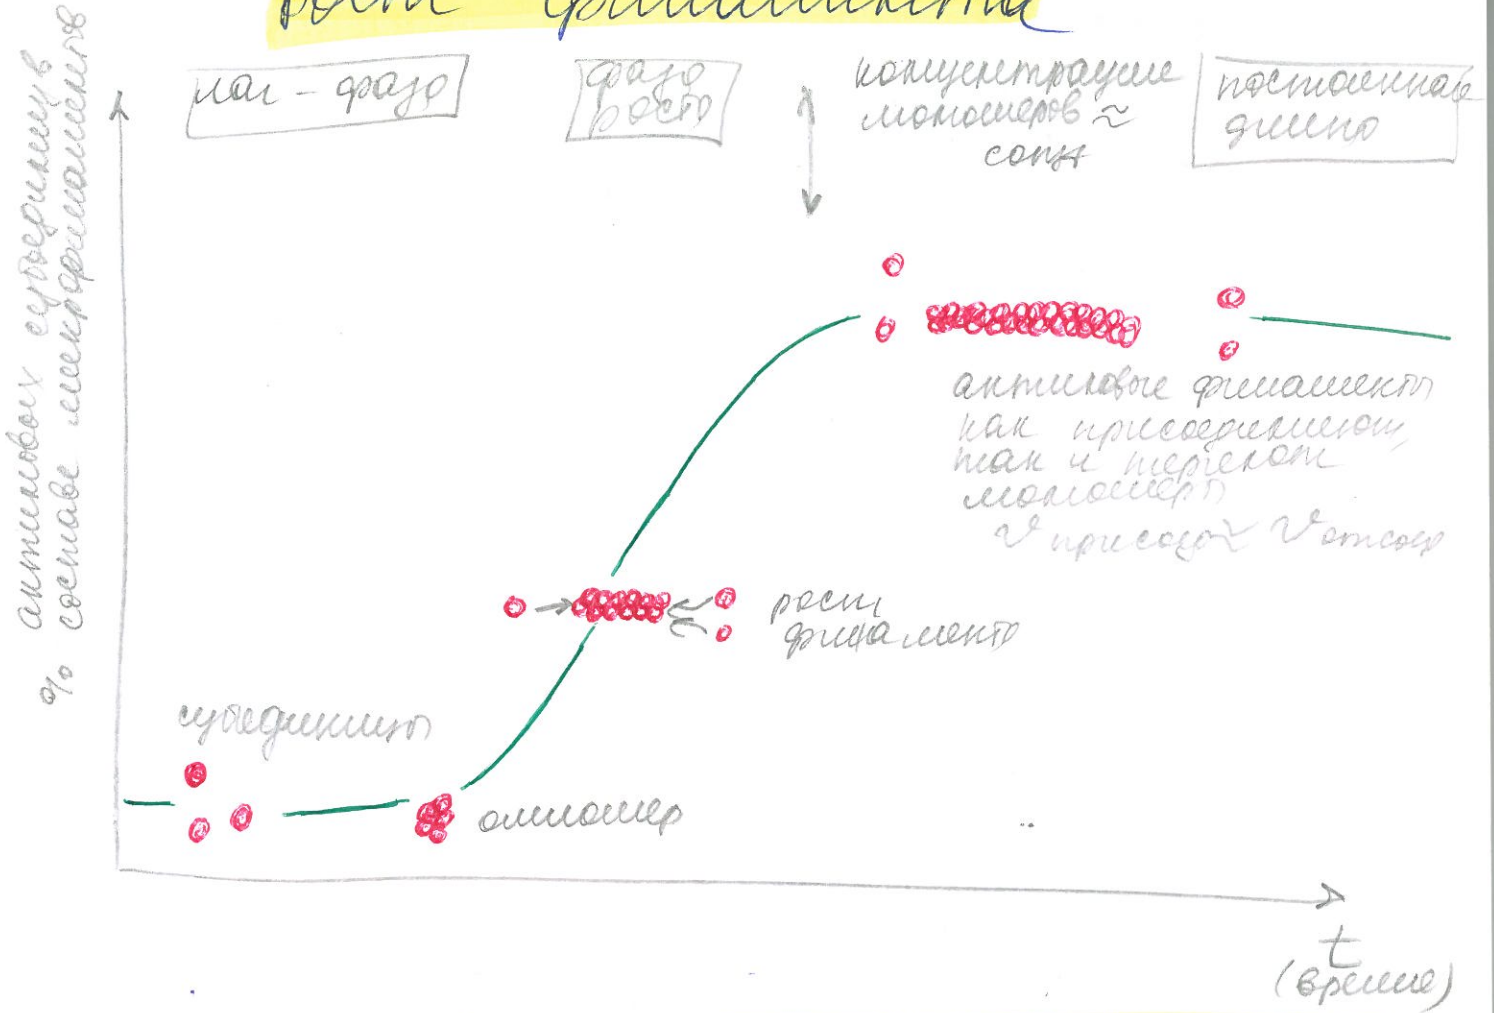 рост филамента
% актиновых субъединиц в
составе микрофиламента
лаг-фаза
фаза
роста
концентрация
мономеров ≈
const
постоянная
длина
актиновые филаменты
как присоединяют,
так и теряют
мономеры
V присоед ≈ V отсоед
рост
филамента
субъединицы
олигомер
t
(время)